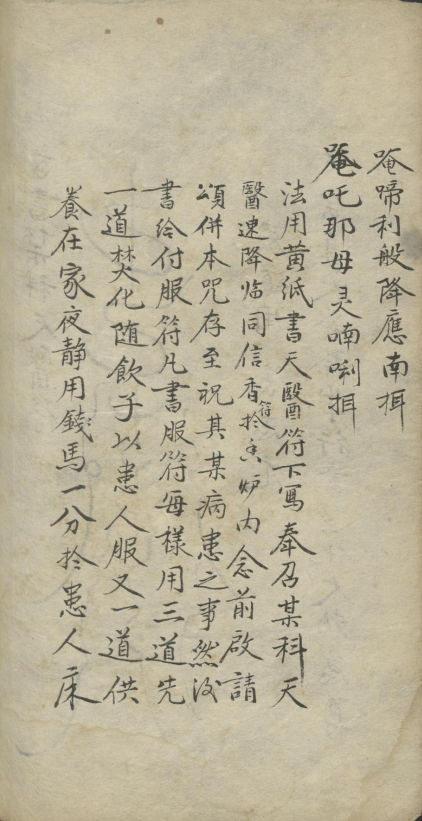 唵啼利般降應南揖
唵吒那母灵喃唎揖
法用黄紙書天醫符下寫奉召某科天
醫速降临同信香符扵香炉内念前啟請
頌併本咒存至祝其某病患之事然後
書给付服符凡書服符每樣用三道先
一道焚化随飲子以患人服又一道供
養在家夜静用錢馬一分扵患人床